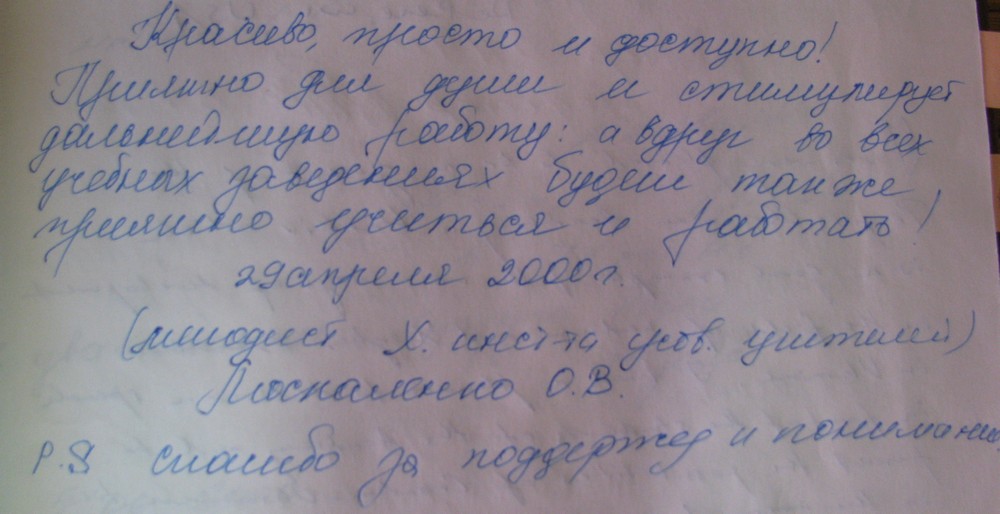 Красиво, просто и доступно!
Приятно для души и стимулирует
дальнейшую работу: а вдруг во всех
учебных заведениях будет также
приятно учиться и работать!
29 апреля 2000 г.
(методист Х. инст-та усов. учителей)
Москаленко О.В.
P.S спасибо за поддержку и понимание